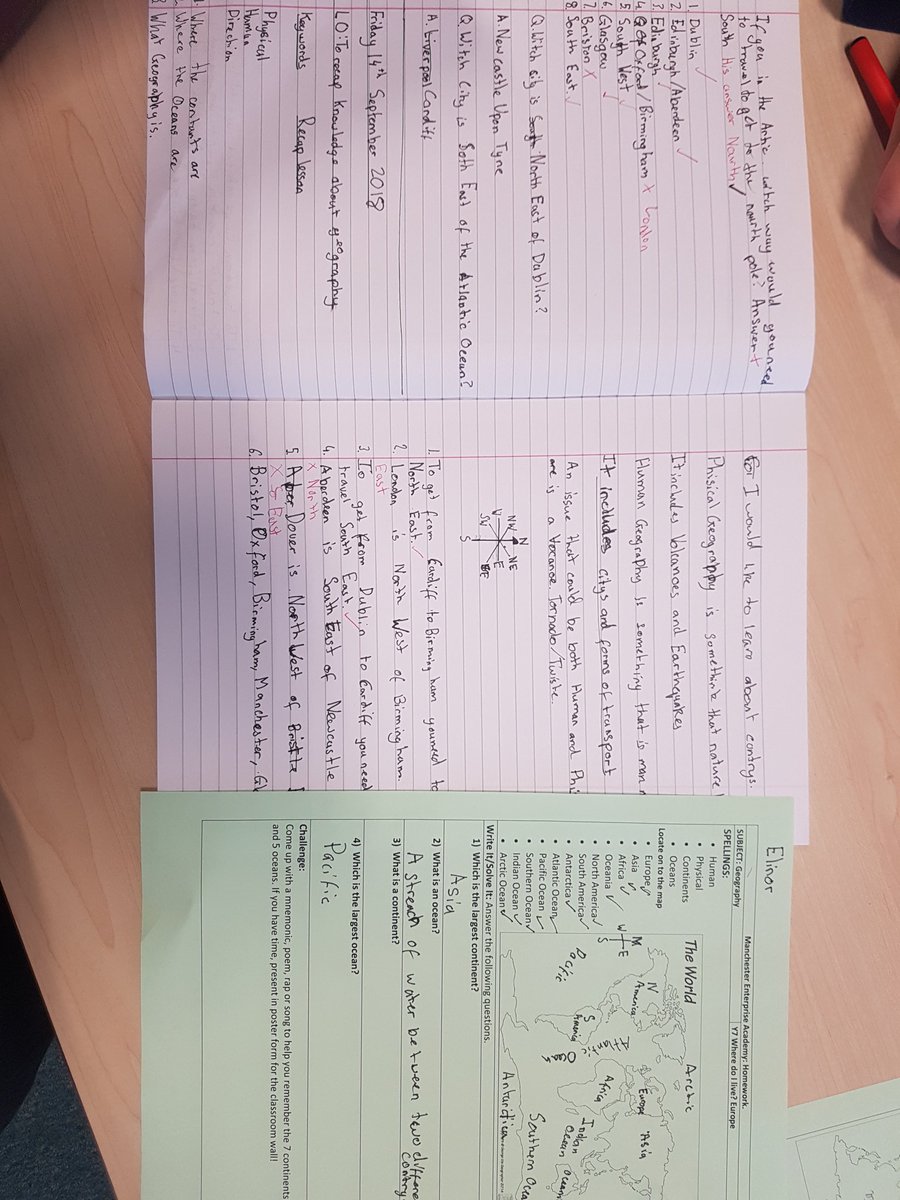 If you in the Artic witch way would you need
to travel to get to the nourth pole? Answer↑
South His answer Nourth ✓
1. Dublin ✓
2 Edinburgh/Aberdeen ✓
3. Edinburgh
4. Oxford/Birmingham x London
5 South West ✓
6. Glasgow ✓
7 Briston X
8. South East. ✓
Q. Witch city is North East of Dublin?
A. Newcastle Upon Tyne
Q. Witch City is Soth East of the Atlantic Ocean?
A. Liverpool Cardiff
Friday 14th September 2018
LO: To recap knowledge about geography
Keywords Recap lesson
Physical
Human
Direction
Where the contunts are
Where the Oceans are
What Geography is.
For I would like to learn about contrys.
Phisical Geography is somethink that nature
It includes Volcanoes and Earthquakes
Human Geography is something that is man
It includes citys and forms of transport
An issue that could be both Human and Phi
are is a Tornado/Twiste.
N
NE
E
SE
S
SW
V
NW
1. To get from Cardiff to Birming ham you need to
North East. ✓
2. London is North West of Birmingham.
East
3. To get from Dublin to Cardiff you need
travel South East. ✓
4. Aberdeen is South East of Newcastle
x North
5. Dover is North West of Bristle
X East
6. Bristol, Oxford, Birmingham, Manchester,
Elinor
SUBJECT: Geography
Manchester Enterprise Academy: Homework.
Y7 Where do I live? Europe
SPELLINGS:
• Human
• Physical
• Continents
• Oceans
Locate on to the map
• Europe ✓
• Asia ✓
• Africa ✓
• Oceania ✓
• North America ✓
• South America ✓
• Antarctica ✓
• Atlantic Ocean ✓
• Pacific Ocean ✓
• Southern Ocean ✓
• Indian Ocean ✓
• Arctic Ocean ✓
The World
Arctic
America
Europe
Asia
Africa
S
America
Pacific
Indian
Ocean
Southern Ocea
Antarctica
Write it/Solve it: Answer the following questions.
1) Which is the largest continent?
Asia
2) What is an ocean?
A streach of water between two differe
contry
3) What is a continent?
4) Which is the largest ocean?
Pacific
Challenge:
Come up with a mnemonic, poem, rap or song to help you remember the 7 continents
and 5 oceans. If you have time, present in poster form for the classroom wall!